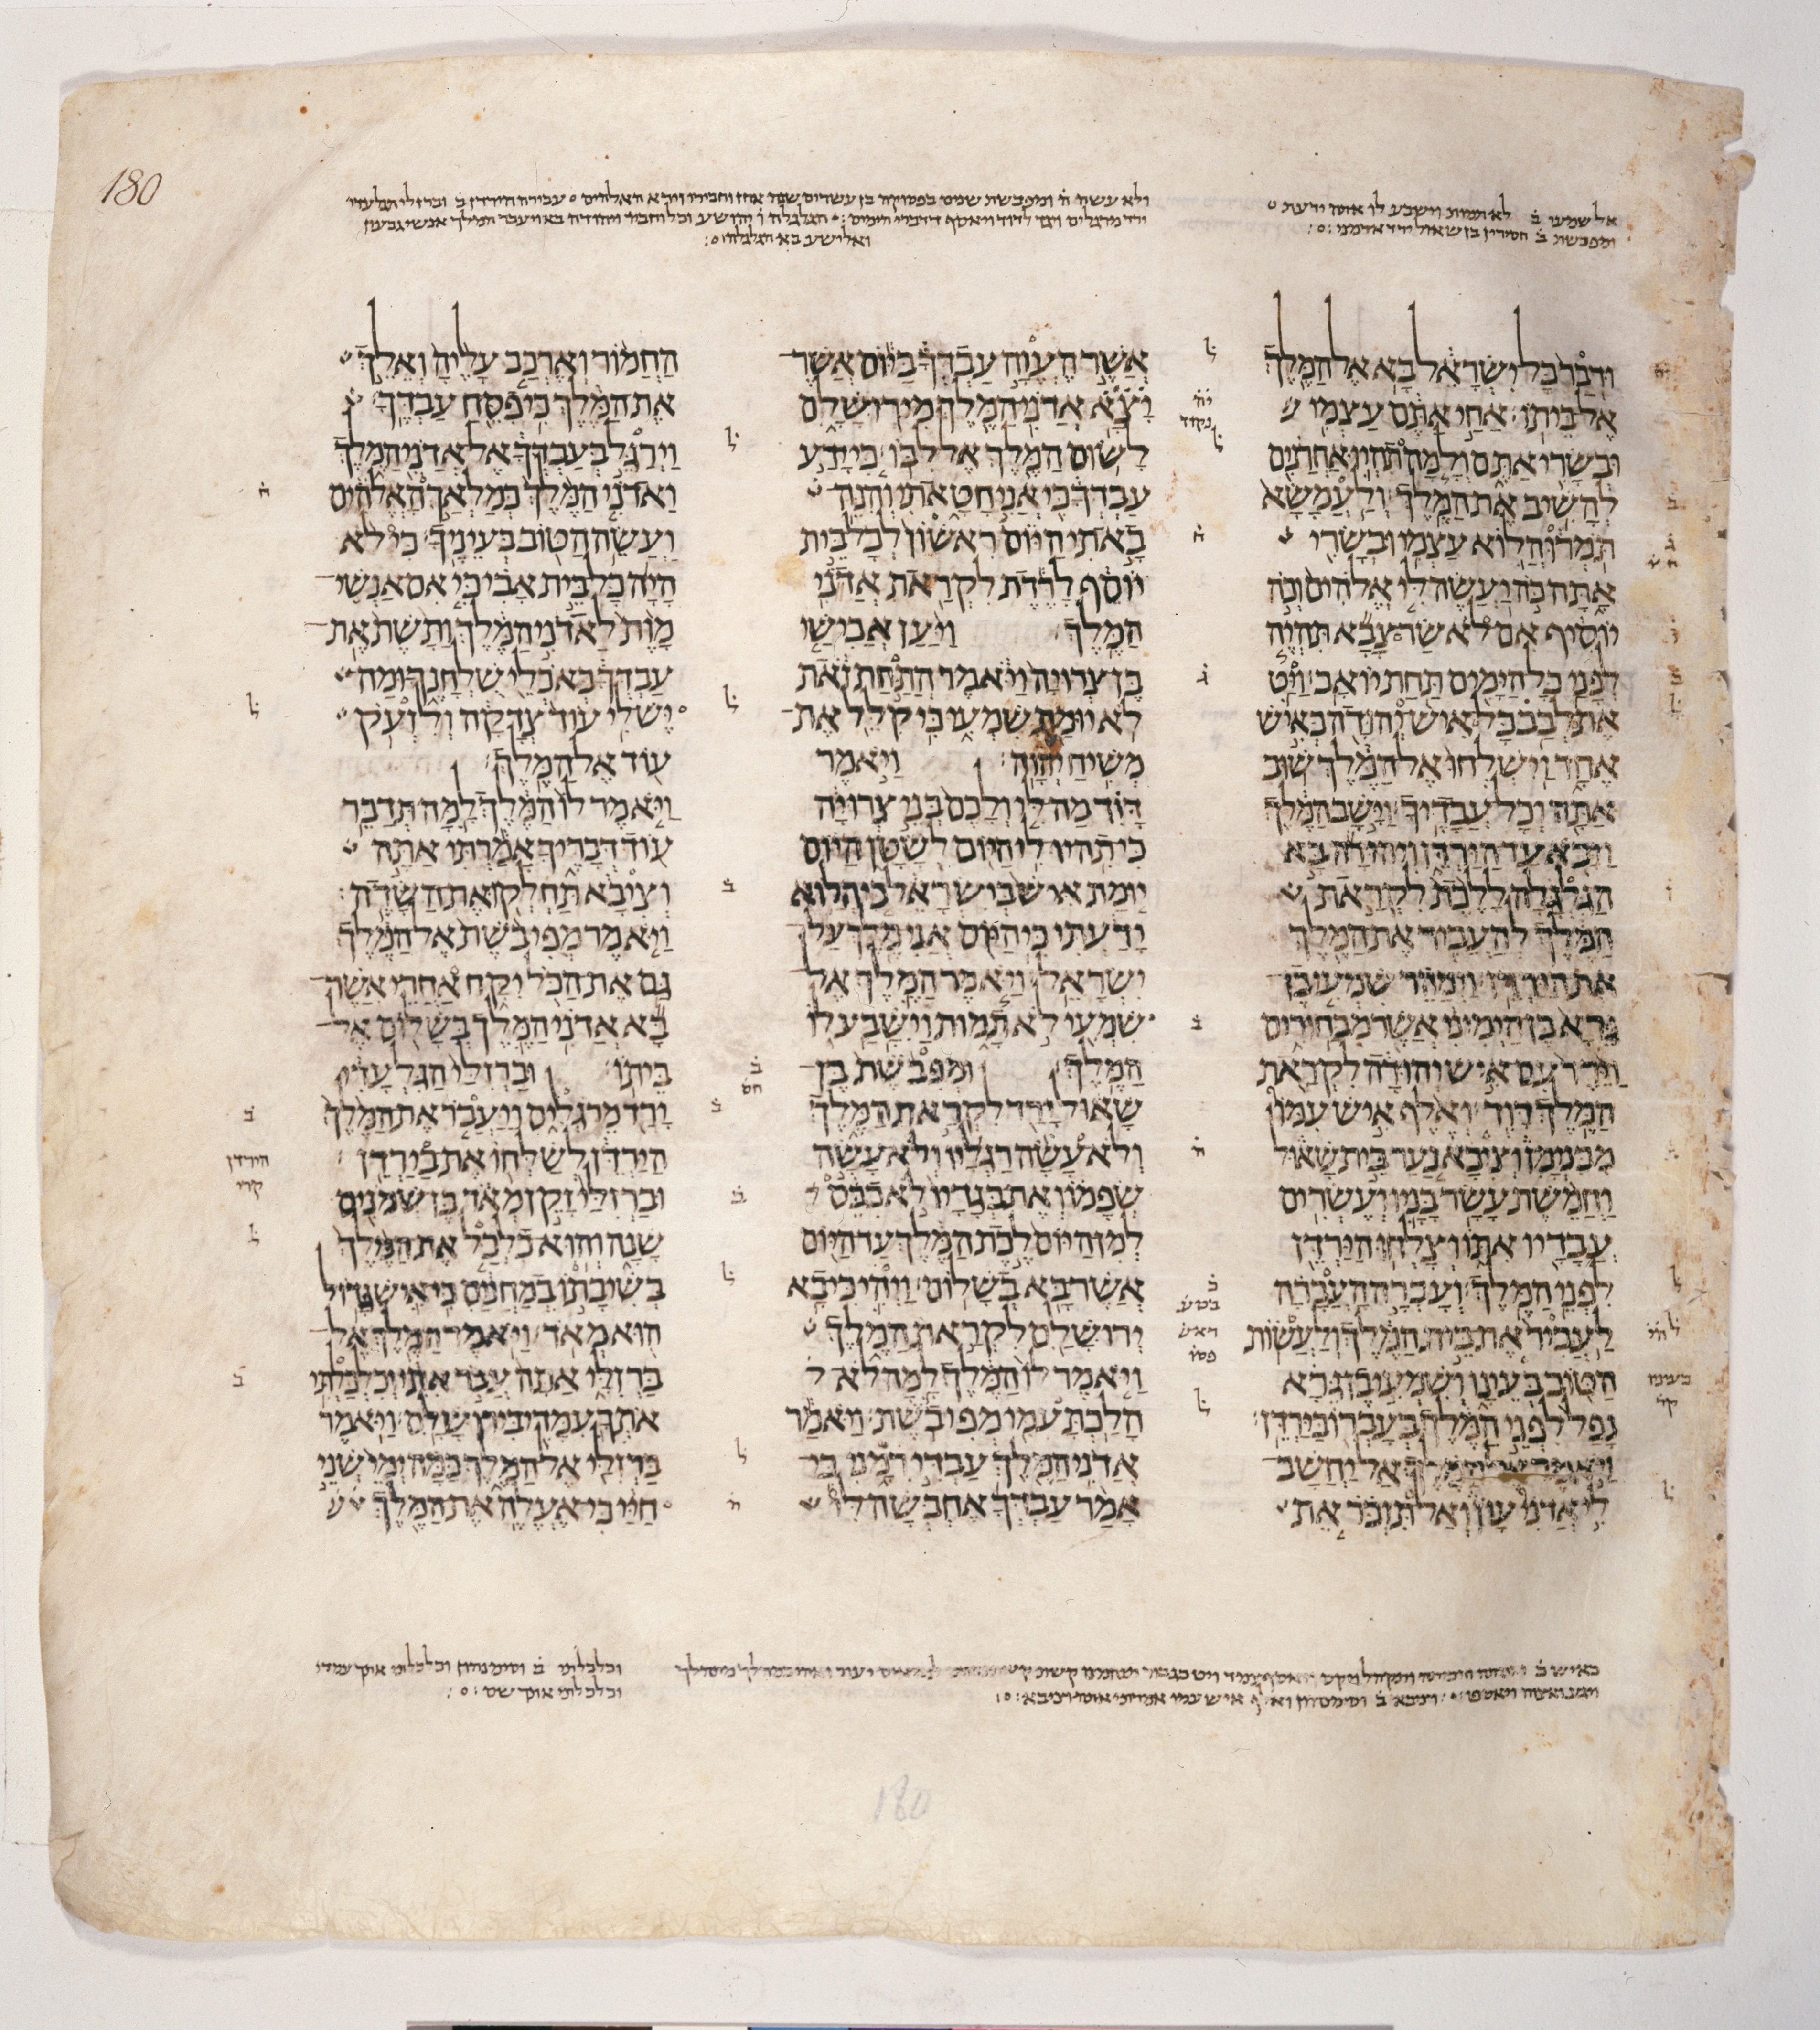 180
אל שמעי ב לא תמות וישבע לו
ודבר כל ישראל בא אל המלך
אל ביתו׃ אחי אתם עצמי
ובשרי אתם ולמה תהיו אחרנים
להשיב את המלך׃ ולעמשא
תמרו הלוא עצמי ובשרי
אתה כה יעשה לי אלהים וכה
יוסיף אם לא שר צבא תהיה
לפני כל הימים תחת יואב׃ ויט
את לבב כל איש יהודה כאיש
אחד וישלחו אל המלך שוב
אתה וכל עבדיך׃ וישב המלך
ויבא עד הירדן ויהודה בא
הגלגלה ללכת לקראת
המלך להעביר את המלך
את הירדן׃ וימהר שמעי בן
גרא בן הימיני אשר מבחורים
וירד עם איש יהודה לקראת
המלך דוד׃ ואלף איש עמו
מבנימן וציבא נער בית שאול
וחמשת עשר בניו ועשרים
עבדיו אתו וצלחו הירדן
לפני המלך׃ ועברה העברה
לעביר את בית המלך ולעשות
הטוב בעינו ושמעי בן גרא
נפל לפני המלך בעברו בירדן׃
ויאמר אל המלך אל יחשב
לי אדני עון ואל תזכר את
אשר העוה עבדך ביום אשר
יצא אדני המלך מירושלם
לשום המלך אל לבו׃ כי ידע
עבדך כי אני חטאתי והנה
באתי היום ראשון לכל בית
יוסף לרדת לקראת אדני
המלך׃ ויען אבישי
בן צרויה ויאמר התחת זאת
לא יומת שמעי כי קלל את
משיח יהוה׃ ויאמר
דוד מה לי ולכם בני צרויה
כי תהיו לי היום לשטן היום
יומת איש בישראל כי הלוא
ידעתי כי היום אני מלך על
ישראל׃ ויאמר המלך אל
שמעי לא תמות וישבע לו
המלך׃ ומפבשת בן
שאול ירד לקראת המלך
ולא עשה רגליו ולא עשה
שפמו ואת בגדיו לא כבס
למן היום לכת המלך עד היום
אשר בא בשלום׃ ויהי כי בא
ירושלם לקראת המלך
ויאמר לו המלך למה לא
הלכת עמי מפיבשת׃ ויאמר
אדני המלך עבדי רמני כי
אמר עבדך אחבשה לי
החמור וארכב עליה ואלך
את המלך כי פסח עבדך׃
וירגל בעבדך אל אדני המלך
ואדני המלך כמלאך האלהים
ועשה הטוב בעיניך׃ כי לא
היה כל בית אבי כי אם אנשי
מות לאדני המלך ותשת את
עבדך באכלי שלחנך ומה
יש לי עוד צדקה ולזעק
עוד אל המלך׃
ויאמר לו המלך למה תדבר
עוד דבריך אמרתי אתה
וציבא תחלקו את השדה׃
ויאמר מפיבשת אל המלך
גם את הכל יקח אחרי אשר
בא אדני המלך בשלום אל
ביתו׃ וברזלי הגלעדי
ירד מרגלים ויעבר את המלך
הירדן לשלחו את בירדן׃
וברזלי זקן מאד בן שמנים
שנה והוא כלכל את המלך
בשיבתו במחנים כי איש גדול
הוא מאד׃ ויאמר המלך אל
ברזלי אתה עבר אתי וכלכלתי
אתך עמדי בירושלם׃ ויאמר
ברזלי אל המלך כמה ימי שני
חיי כי אעלה את המלך
וכלכלתי ב וסימנהון וכלכלתי אתך עמדי
180